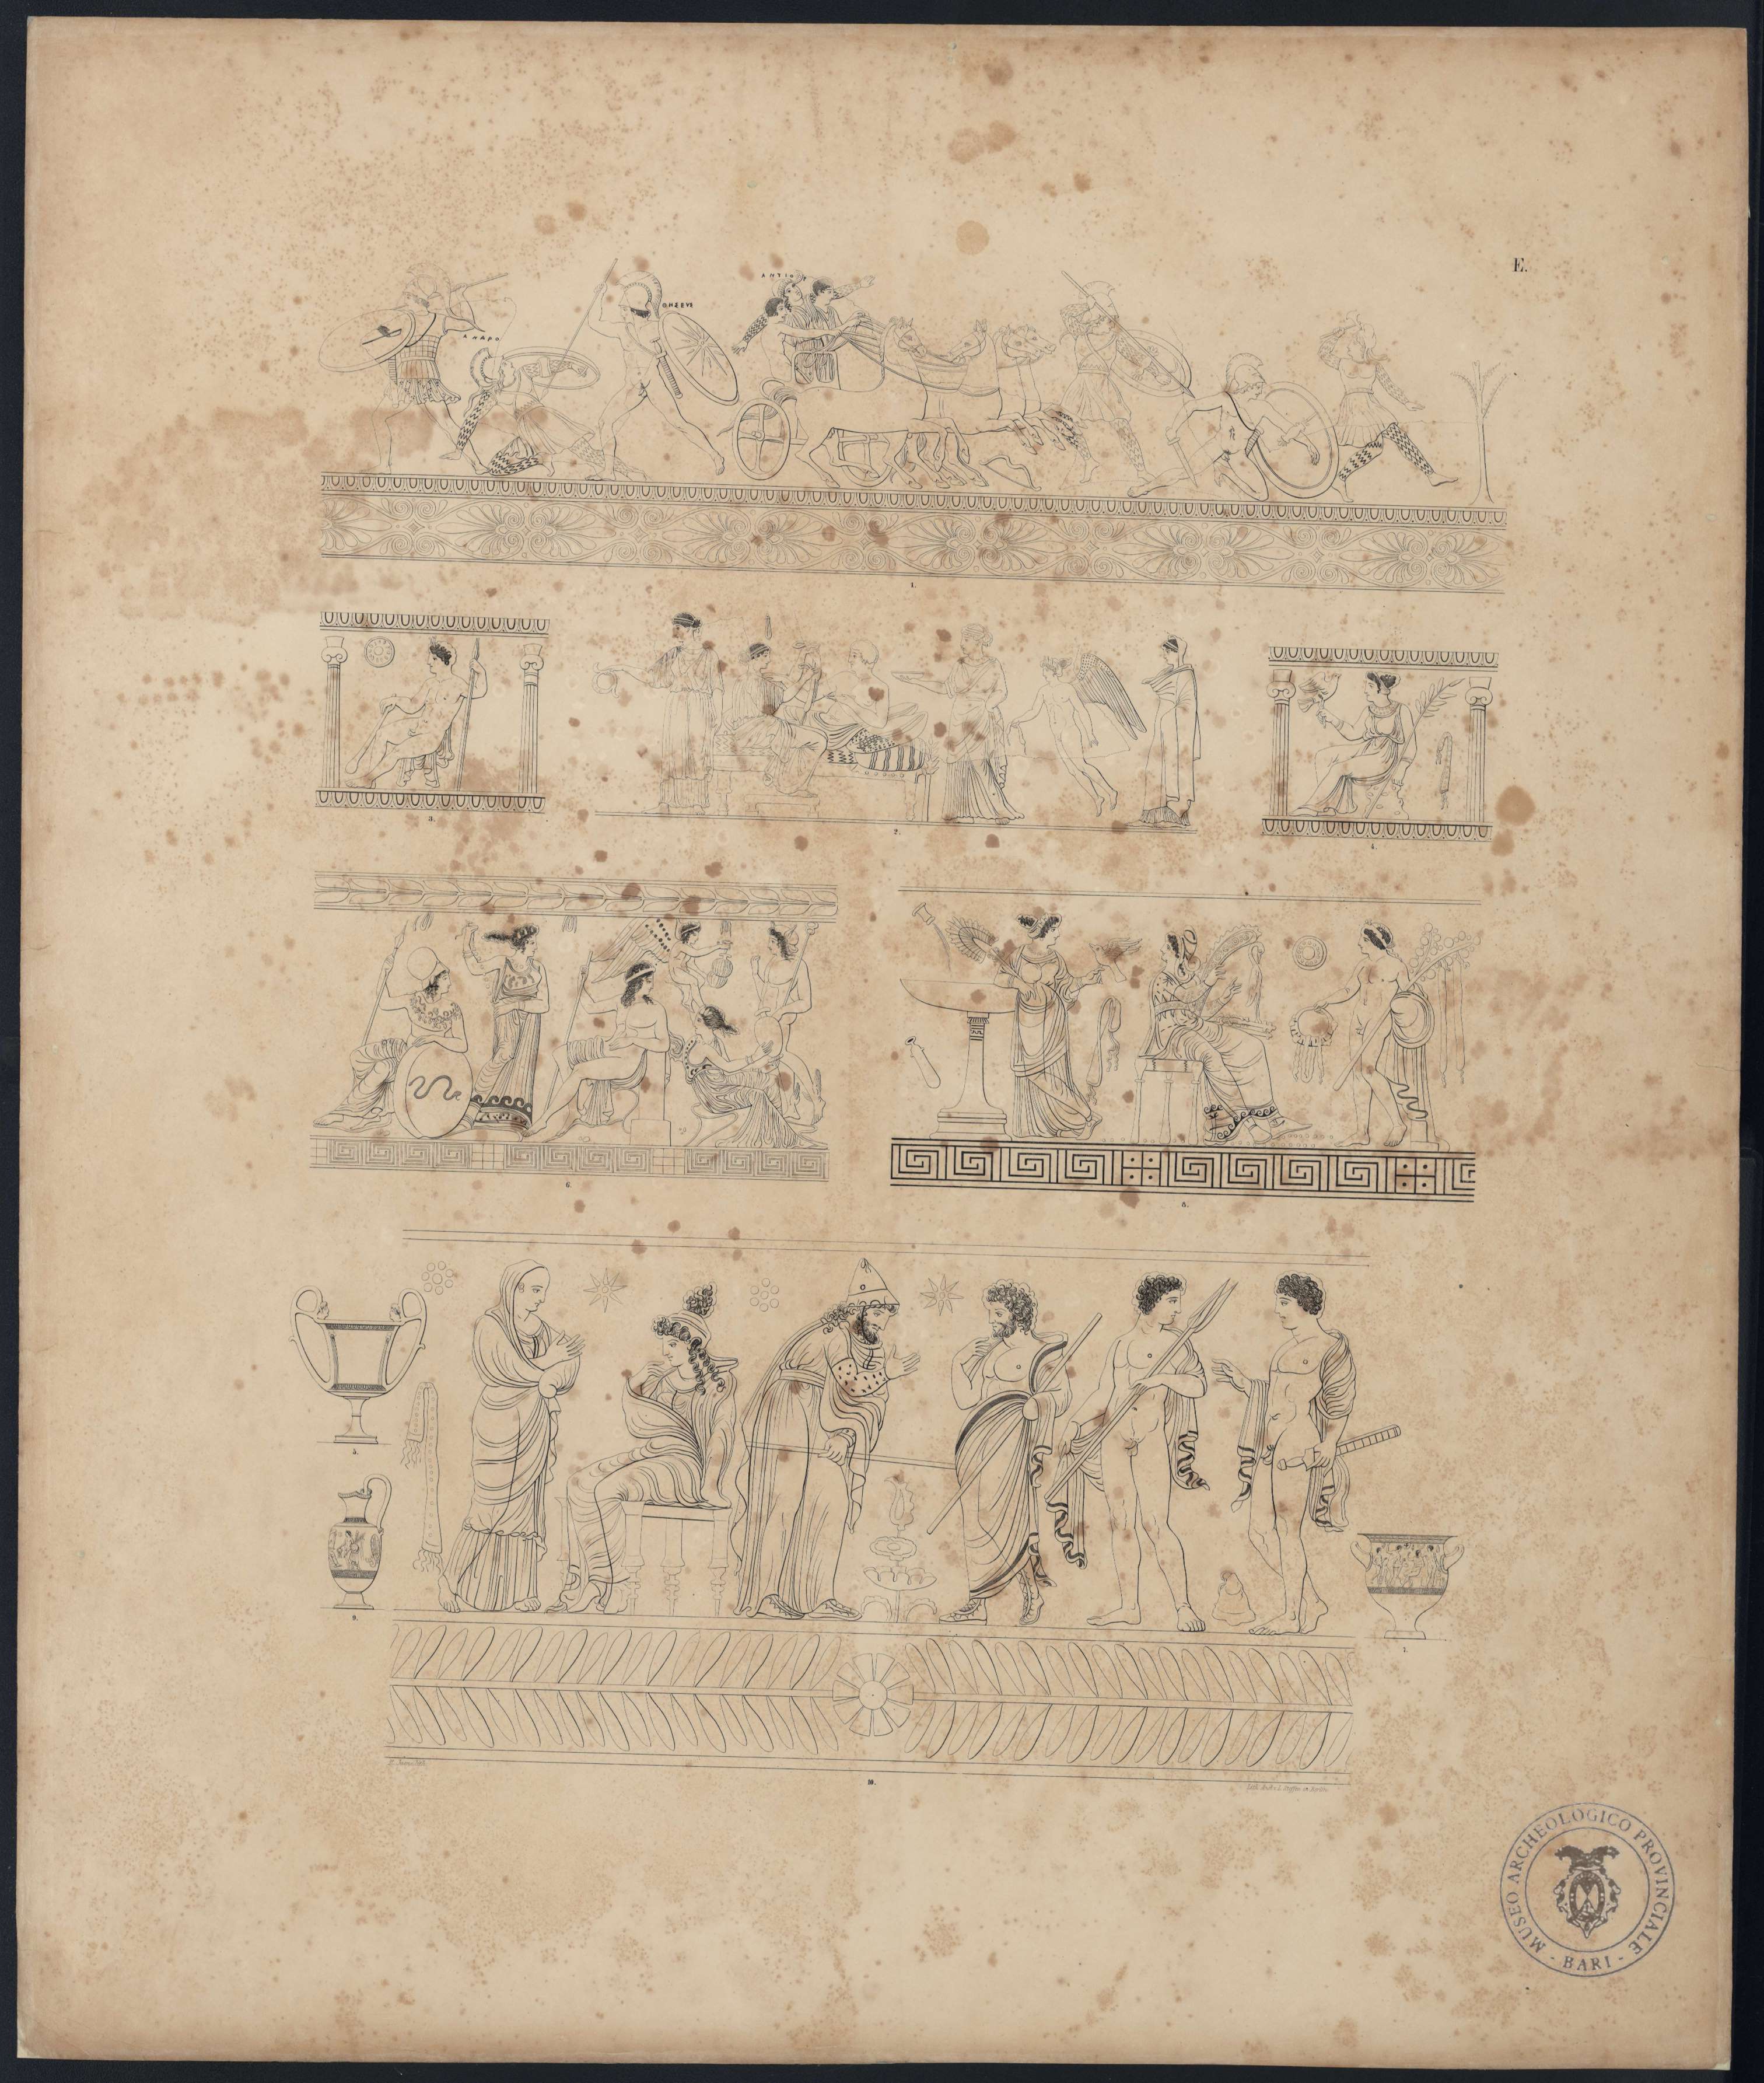 E.
ΑΝΤΙΟΠ
ΘΗΣΕΥΣ
ΑΝΔΡΟ
1.
3.
2.
4.
6.
5.
9.
7.
10.
MUSEO ARCHEOLOGICO PROVINCIALE
- BARI -